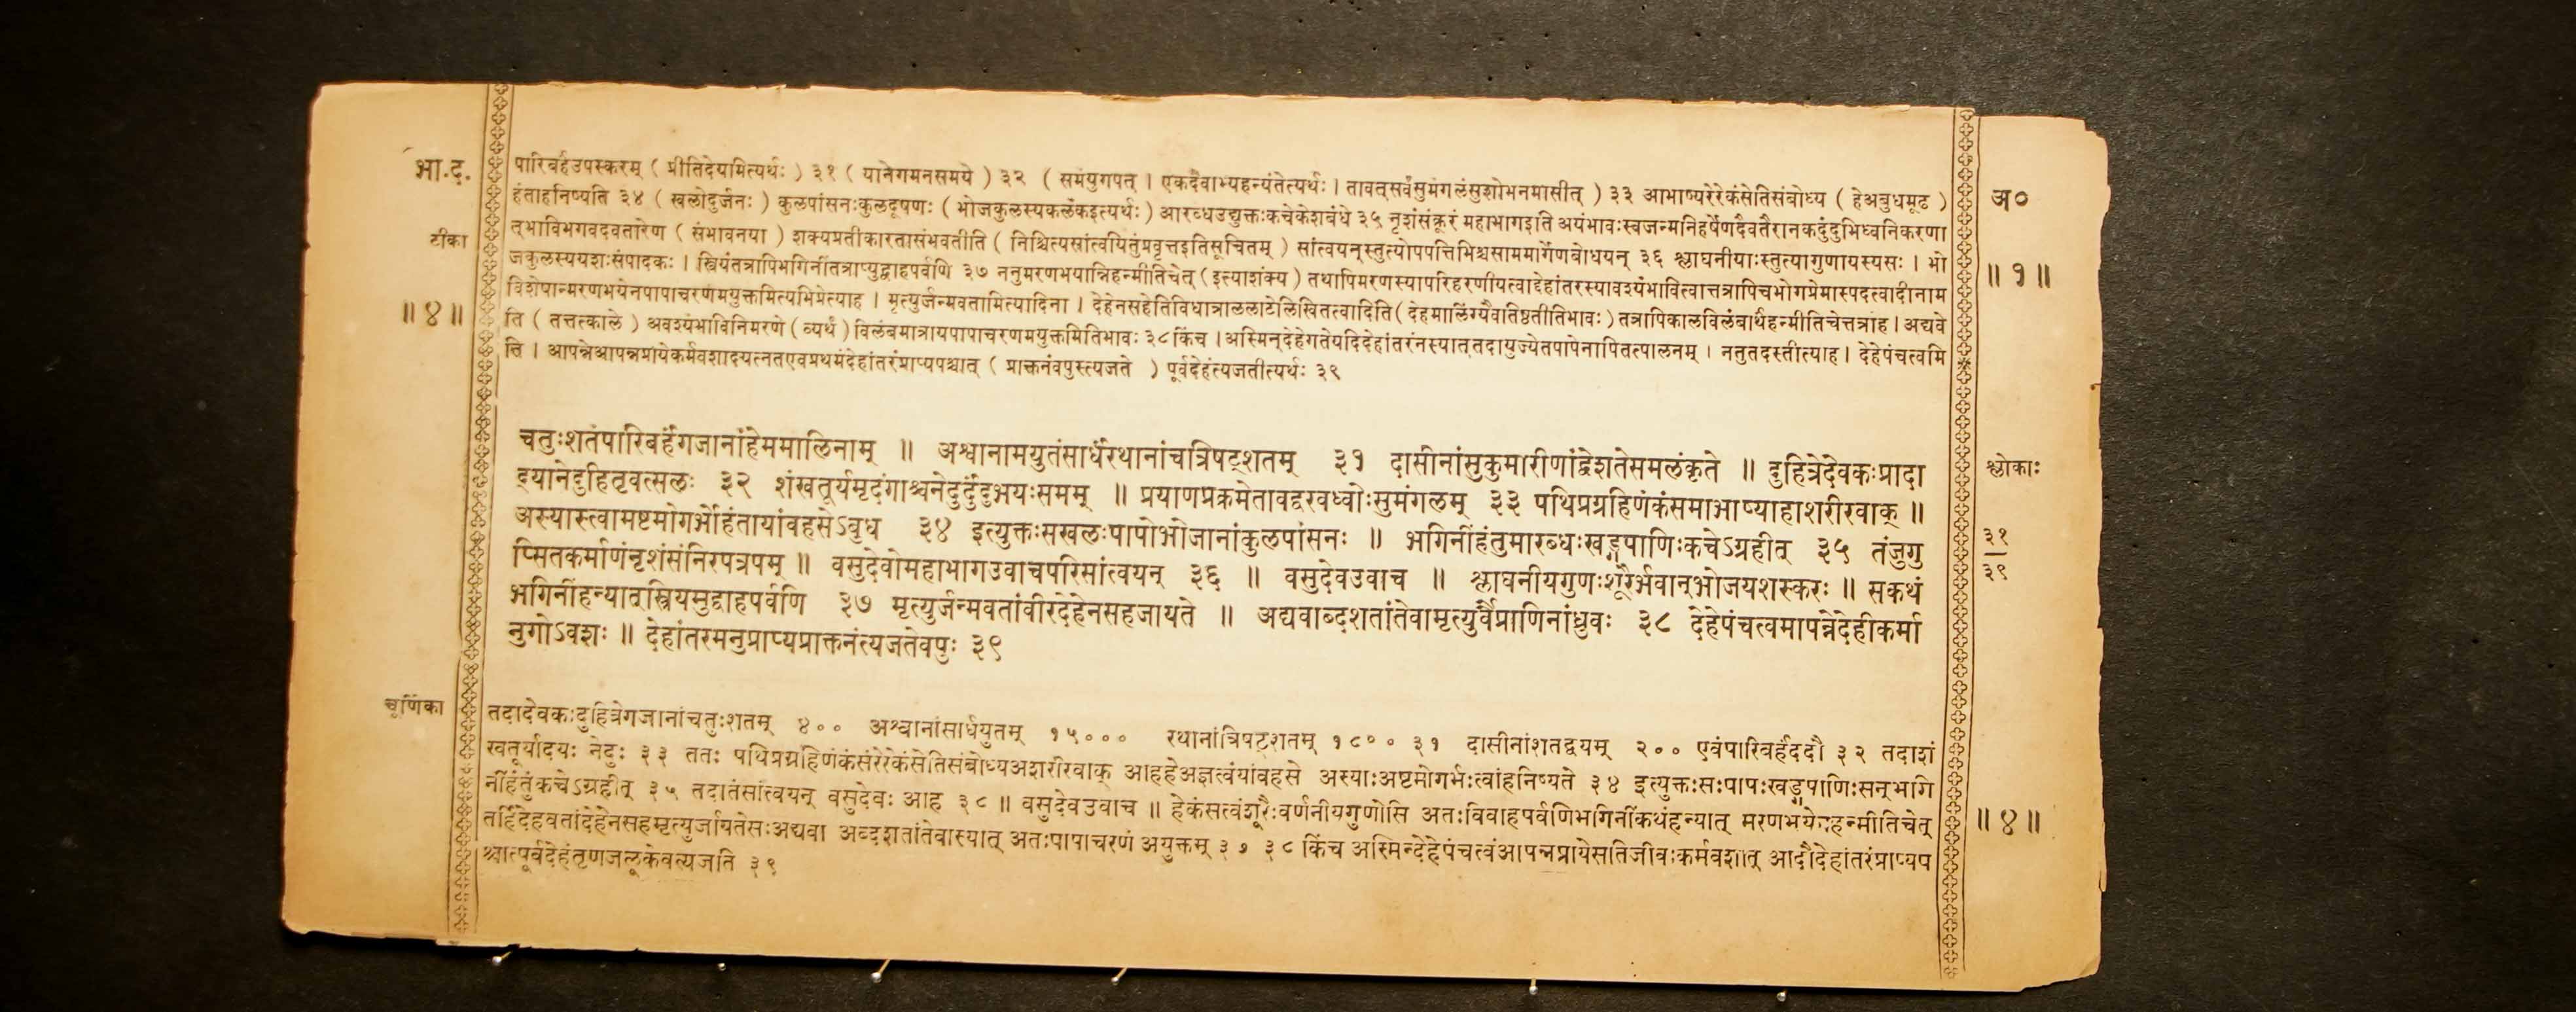 भा.द.
पारिबर्हउपस्करम् ( प्रीतिदेयमित्यर्थः ) ३१ ( यानेगमनसमये ) ३२ ( समंयुगपत् । एकदैवाभ्यहन्यंतेत्यर्थः । तावत्सर्वंसुमंगलंसुशोभनमासीत् ) ३३ आभाष्यरेरेकंसेतिसंबोध्य ( हेअबुधमूढ )
अ०
हंताहनिष्यति ३४ ( खलोदुर्जनः ) कुलपांसनःकुलदूषणः ( भोजकुलस्यकलंकइत्यर्थः ) आरब्धउद्युक्तःकचेकेशबंधे ३५ नृशंसंक्रूरं महाभागइति अयंभावःस्वजन्मनिहर्षेणदैवतैरानकदुंदुभिध्वनिकरणा
टीका
त्भाविभगवदवतारेण ( संभावनया ) शक्यप्रतीकारतासंभवतीति ( निश्चित्यसांत्वयितुंप्रवृत्तइतिसूचितम् ) सांत्वयन्स्तुत्योपपत्तिभिश्चसाममार्गेणबोधयन् ३६ श्लाघनीयाःस्तुत्यागुणायस्यसः । भो
जकुलस्ययशःसंपादकः । स्त्रियंतत्रापिभगिनींतत्राप्युद्वाहपर्वणि ३७ ननुमरणभयान्निहन्मीतिचेत् ( इत्याशंक्य ) तथापिमरणस्यापरिहरणीयत्वाद्देहांतरस्यावश्यंभावित्वात्तत्रापिचभोगप्रेमास्पदत्वादीनाम
॥ १ ॥
विशेषान्मरणभयेनपापाचरणमयुक्तमित्यभिप्रेत्याह । मृत्युर्जन्मवतामित्यादिना । देहेनसहेतिविधात्राललाटेलिखितत्वादिति ( देहमालिंग्यैवातिष्ठतीतिभावः ) तत्रापिकालविलंबार्थंहन्मीतिचेत्तत्राह । अद्यवे
॥ ४ ॥
ति ( तत्तत्काले ) अवश्यंभाविनिमरणे ( व्यर्थं ) विलंबमात्रायपापाचरणमयुक्तमितिभावः ३८ किंच । अस्मिन्देहेगतेयदिदेहांतरंनस्यात्तदायुज्येतपापेनापितत्पालनम् । नतुतदस्तीत्याह । देहेपंचत्वमि
ति । आपन्नेआपन्नप्रायेकर्मवशादयत्नतएवप्रथमंदेहांतरंप्राप्यपश्चात् ( प्राक्तनंवपुस्त्यजते ) पूर्वदेहंत्यजतीत्यर्थः ३९
चतुःशतंपारिबर्हंगजानांहेममालिनाम् ॥ अश्वानामयुतंसार्धंरथानांचत्रिषट्शतम् ३१ दासीनांसुकुमारीणांद्वेशतेसमलंकृते ॥ दुहित्रेदेवकःप्रादा
श्लोकाः
द्यानेदुहितृवत्सलः ३२ शंखतूर्यमृदंगाश्चनेदुर्दुंदुभयःसमम् ॥ प्रयाणप्रक्रमेतावद्वरवध्वोःसुमंगलम् ३३ पथिप्रग्रहिणंकंसमाभाष्याहाशरीरवाक् ॥
अस्यास्त्वामष्टमोगर्भोहंतायांवहसेऽबुध ३४ इत्युक्तःसखलःपापोभोजानांकुलपांसनः ॥ भगिनींहंतुमारब्धःखड्गपाणिःकचेऽग्रहीत् ३५ तंजुगु
३१
३९
प्सितकर्माणंनृशंसंनिरपत्रपम् ॥ वसुदेवोमहाभागउवाचपरिसांत्वयन् ३६ ॥ वसुदेवउवाच ॥ श्लाघनीयगुणःशूरैर्भवान्भोजयशस्करः ॥ सकथं
भगिनींहन्यात्स्त्रियमुद्वाहपर्वणि ३७ मृत्युर्जन्मवतांवीरदेहेनसहजायते ॥ अद्यवाब्दशतांतेवामृत्युर्वैप्राणिनांध्रुवः ३८ देहेपंचत्वमापन्नेदेहीकर्मा
नुगोऽवशः ॥ देहांतरमनुप्राप्यप्राक्तनंत्यजतेवपुः ३९
चूर्णिका
तदादेवकःदुहित्रेगजानांचतुःशतम् ४०० अश्वानांसार्धयुतम् १५००० रथानांत्रिषट्शतम् १८०० ३१ दासीनांशतद्वयम् २०० एवंपारिबर्हंददौ ३२ तदाशं
खतूर्यादयः नेदुः ३३ ततः पथिप्रग्रहिणंकंसंरेरेकंसेतिसंबोध्यअशरीरवाक् आहहेअज्ञत्वंयांवहसे अस्याःअष्टमोगर्भःत्वांहनिष्यते ३४ इत्युक्तःसःपापःखड्गपाणिःसन्भागि
नींहंतुंकचेऽग्रहीत् ३५ तदातंसांत्वयन् वसुदेवः आह ३८ ॥ वसुदेवउवाच ॥ हेकंसत्वंशूरैःवर्णनीयगुणोसि अतःविवाहपर्वणिभगिनींकथंहन्यात् मरणभयेनहन्मीतिचेत्
॥ ४ ॥
तर्हिदेहवतांदेहेनसहमृत्युर्जायतेसःअद्यवा अब्दशतांतेवास्यात् अतःपापाचरणं अयुक्तम् ३७ ३८ किंच अस्मिन्देहेपंचत्वंआपन्नप्रायेसतिजीवःकर्मवशात् आदौदेहांतरंप्राप्यप
श्चात्पूर्वदेहंतृणजलूकेवत्यजति ३९